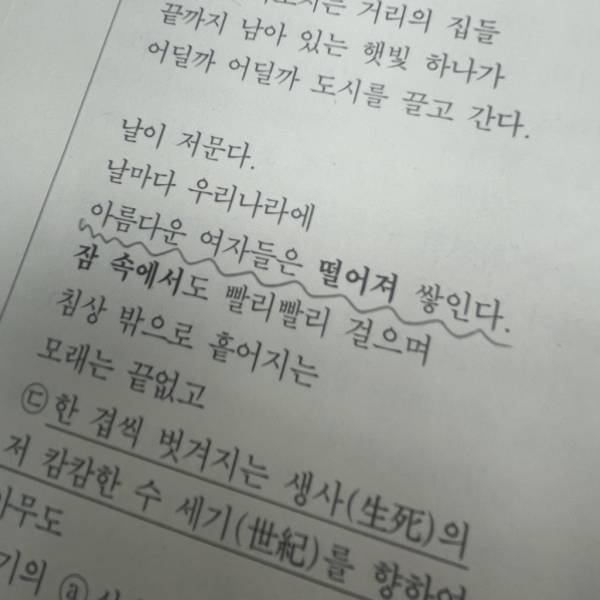 거리의 집들
끝까지 남아 있는 햇빛 하나가
어딜까 어딜까 도시를 끌고 간다.
날이 저문다.
날마다 우리나라에
아름다운 여자들은 떨어져 쌓인다.
잠 속에서도 빨리빨리 걸으며
침상 밖으로 흩어지는
모래는 끝없고
㉢한 겹씩 벗겨지는 생사(生死)의
저 캄캄한 수 세기(世紀)를 향하여
아무도
ⓐ